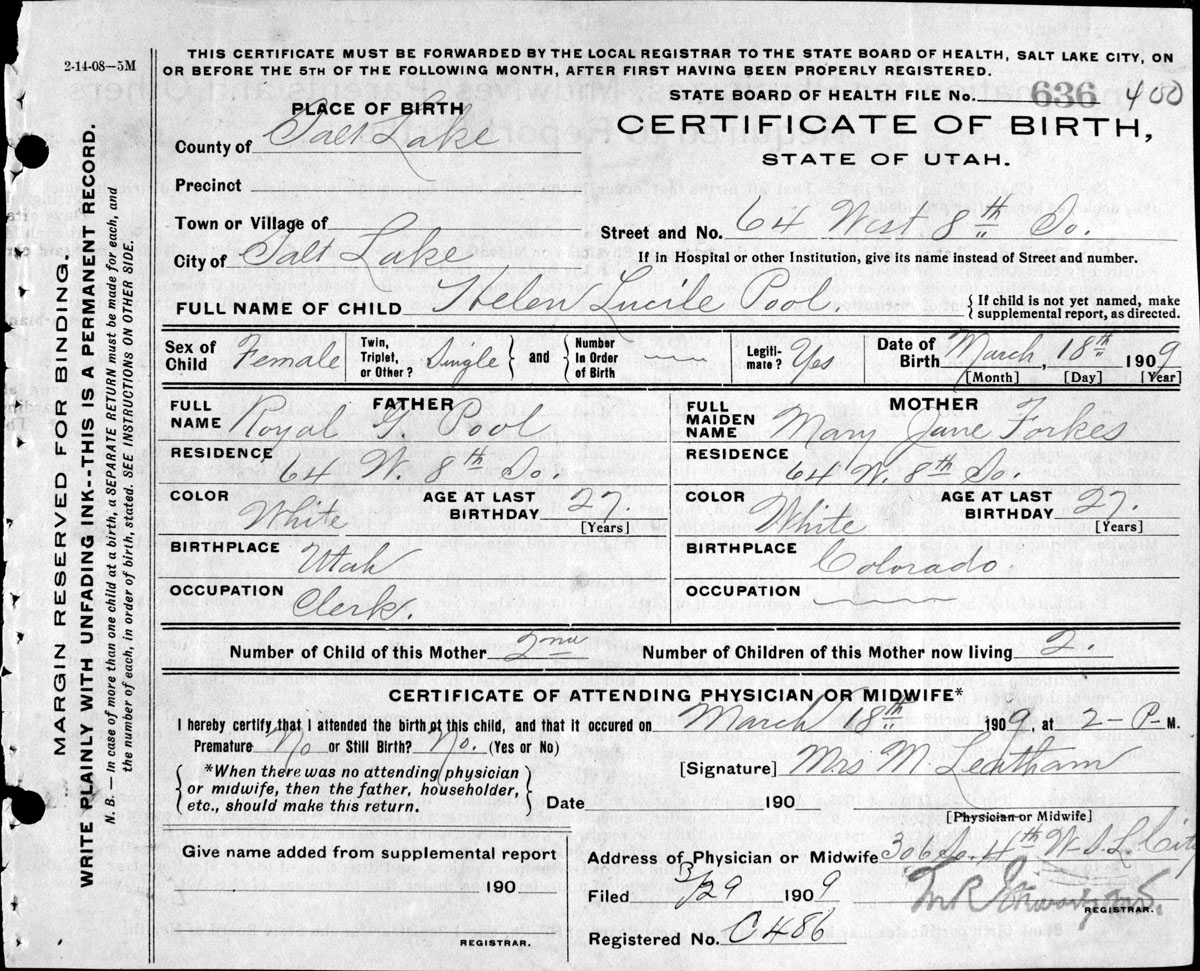 2-14-08—5M
THIS CERTIFICATE MUST BE FORWARDED BY THE LOCAL REGISTRAR TO THE STATE BOARD OF HEALTH, SALT LAKE CITY, ON
OR BEFORE THE 5TH OF THE FOLLOWING MONTH, AFTER FIRST HAVING BEEN PROPERLY REGISTERED.
STATE BOARD OF HEALTH FILE No. 636 400
PLACE OF BIRTH
CERTIFICATE OF BIRTH,
STATE OF UTAH.
County of Salt Lake
Precinct
Town or Village of
Street and No. 64 West 8th So.
City of Salt Lake
If in Hospital or other Institution, give its name instead of Street and number.
FULL NAME OF CHILD Helen Lucile Pool.
{If child is not yet named, make
supplemental report, as directed.
Sex of Child Female
Twin, Triplet, or Other? Single } and { Number In Order of Birth
Legiti-mate? Yes
Date of Birth March 18th, 1909
[Month] [Day] [Year]
FATHER
FULL NAME Royal G. Pool
RESIDENCE 64 W. 8th So.
COLOR White
AGE AT LAST BIRTHDAY 27.
[Years]
BIRTHPLACE Utah
OCCUPATION Clerk.
MOTHER
FULL MAIDEN NAME Mary Jane Forkes
RESIDENCE 64 W. 8th So.
COLOR White
AGE AT LAST BIRTHDAY 27.
[Years]
BIRTHPLACE Colorado.
OCCUPATION
Number of Child of this Mother 2nd
Number of Children of this Mother now living 2.
CERTIFICATE OF ATTENDING PHYSICIAN OR MIDWIFE*
I hereby certify that I attended the birth of this child, and that it occured on March 18th 1909, at 2-P-M.
Premature No or Still Birth? No. (Yes or No)
{*When there was no attending physician
or midwife, then the father, householder,
etc., should make this return.}
[Signature] Mrs M. Leatham
Date 190
[Physician or Midwife]
Give name added from supplemental report
190
REGISTRAR.
Address of Physician or Midwife 306 So. 4th W. S. L. City
Filed 3/29 1909
REGISTRAR.
Registered No. C 486
MARGIN RESERVED FOR BINDING.
WRITE PLAINLY WITH UNFADING INK--THIS IS A PERMANENT RECORD.
N. B. — In case of more than one child at a birth, a SEPARATE RETURN must be made for each, and
the number of each, in order of birth, stated. SEE INSTRUCTIONS ON OTHER SIDE.